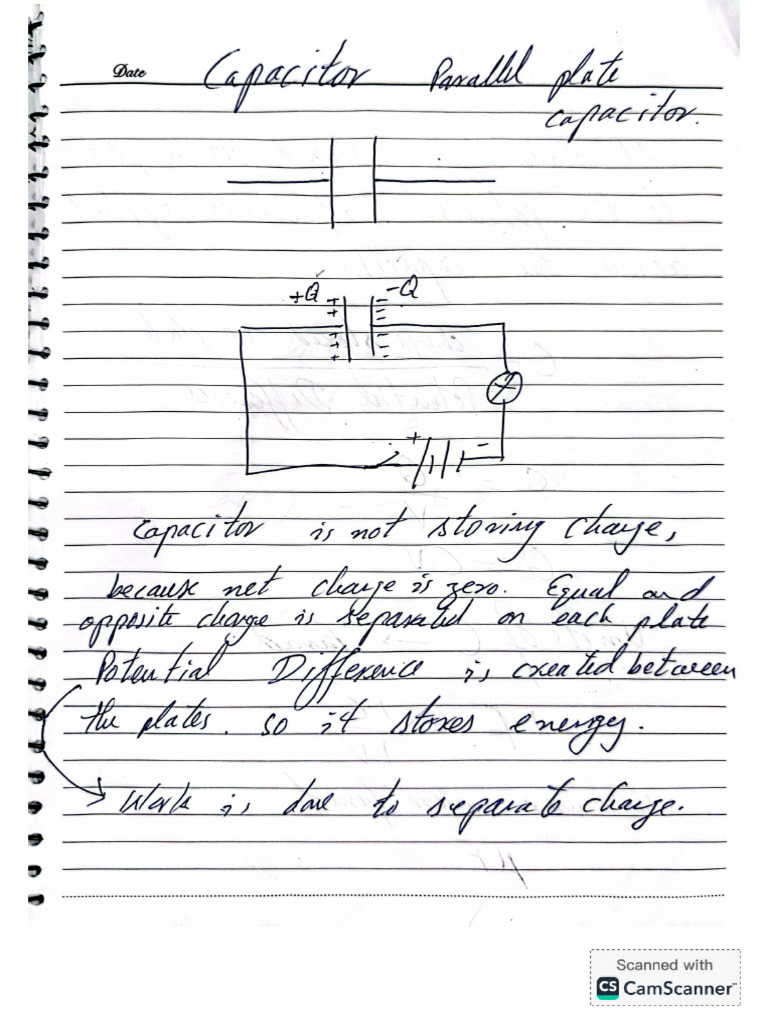 Date
Capacitor Parallel plate
capacitor.
+Q -Q
+ -
Capacitor is not storing charge,
because net charge is zero. Equal and
opposite charge is separated on each plate
Potential Difference is created between
the plates. so it stores energy.
Work is done to separate charge.
Scanned with
CS CamScanner